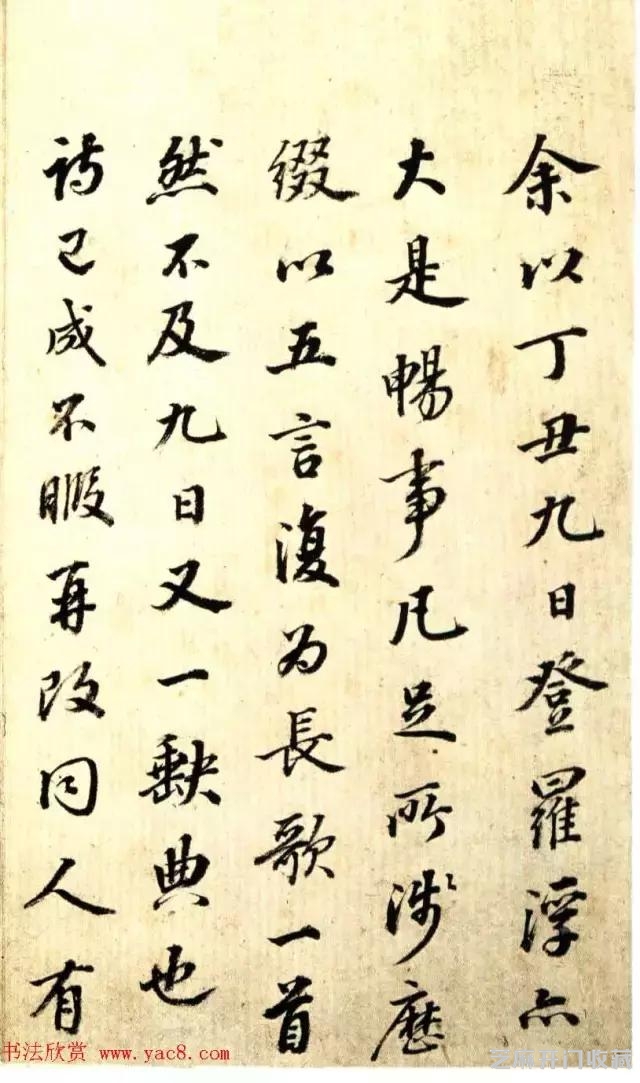 余以丁丑九日登羅浮亦
大是暢事凡足所涉歷
綴以五言復为長歌一首
然不及九日又一缺典也
詩已成不暇再改同人有
书法欣赏 www.yac8.com
芝麻开门收藏